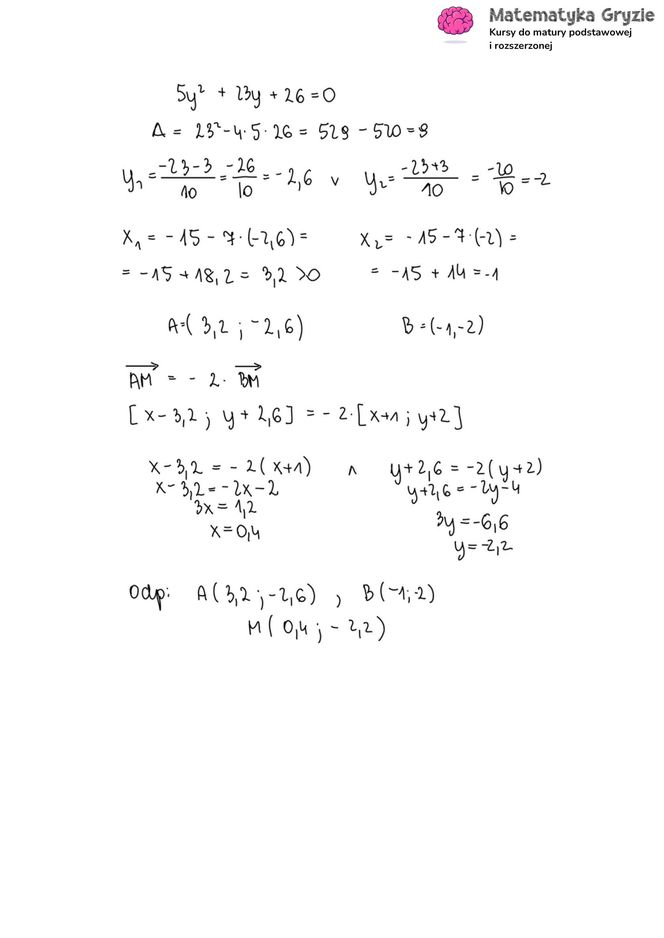 Matematyka Gryzie
Kursy do matury podstawowej
i rozszerzonej
5y² + 23y + 26 = 0
Δ = 23² - 4·5·26 = 529 - 520 = 9
y₁ = (-23-3)/10 = -26/10 = -2,6 ∨ y₂ = (-23+3)/10 = -20/10 = -2
x₁ = -15 - 7·(-2,6) = x₂ = -15 - 7·(-2) =
= -15 + 18,2 = 3,2 > 0 = -15 + 14 = -1
A = (3,2 ; -2,6) B = (-1,-2)
AM→ = - 2 · BM→
[x - 3,2 ; y + 2,6] = - 2·[x+1 ; y+2]
x - 3,2 = - 2(x+1) ∧ y + 2,6 = -2(y+2)
x - 3,2 = -2x - 2 y + 2,6 = -2y - 4
3x = 1,2 3y = -6,6
x = 0,4 y = -2,2
Odp: A(3,2 ; -2,6) , B(-1;-2)
M(0,4 ; - 2,2)